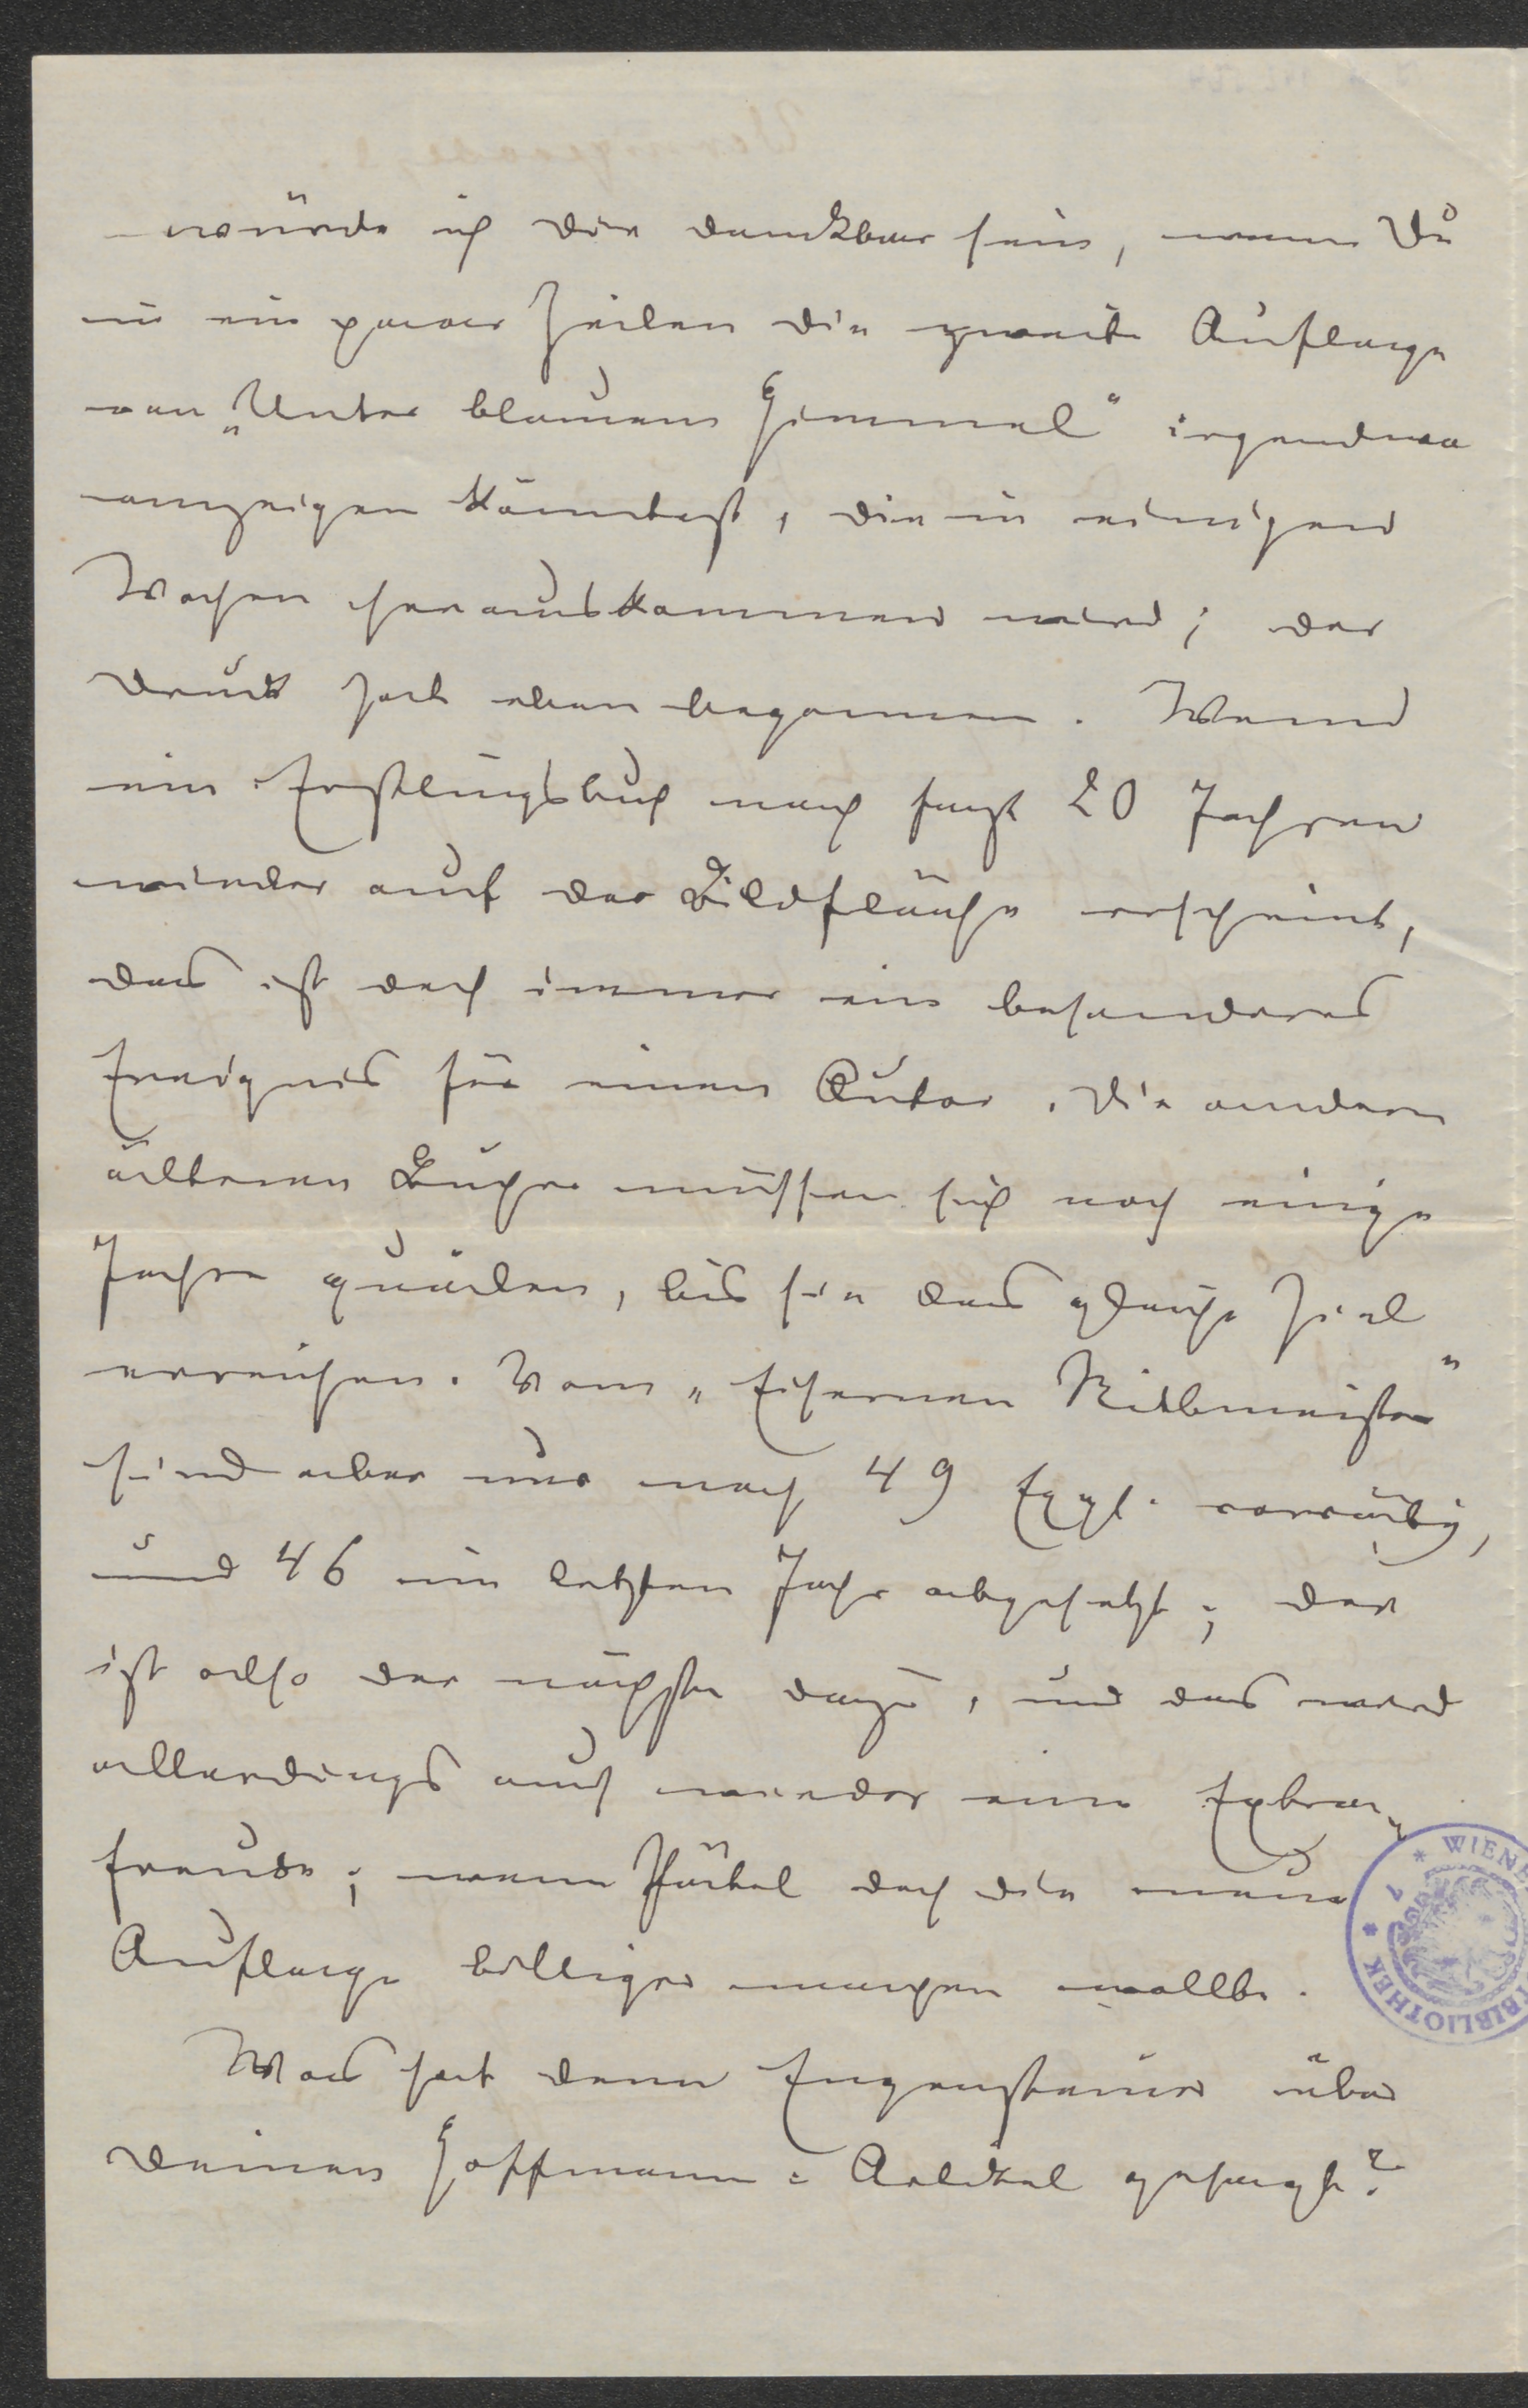 würde ich Dir dankbar sein, wenn Du
in ein paar Zeilen die zweite Auflage
von „Unter blauem Himmel" irgendwo
anzeigen könntest, die in einigen
Wochen herauskommen wird; der
Druck hat eben begonnen. Wenn
ein Erstlingsbuch nach fast 20 Jahren
wieder auf der Bildfläche erscheint,
das ist doch immer ein besonderes
Ereignis für einen Autor. Die andern
älteren Bücher müssen sich noch einige
Jahre quälen, bis sie das gleiche Ziel
erreichen. Vom „Eisernen Rittmeister"
sind aber nur noch 49 Expl. vorrätig,
und 46 im letzten Jahr abgesetzt; der
ist also der nächste dazu, und das wird
allerdings auch wieder eine Extra-
freude; wenn Pätel doch die neue
Auflage billiger machen wollte.
Was hat denn Eugen über
Deinen Hoffmann-Artikel gesagt?
WIENE
TBIBLIOTHEK